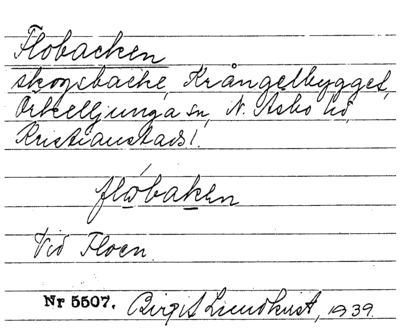 Flobacken
skogsbacke, Krångelbygget,
Örkelljunga sn, N. Åsbo hd,
Kristianstads l.
flobaken
Vid Floen.
Nr 5507. Birgit Lundkvist, 1939.